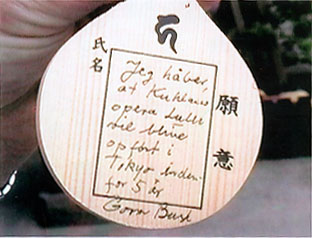 願意
氏名
Jeg håber,
at Kuhlaus
opera Lulu
vil blive
opført i
Tokyo inden-
for 5 år
Gorm Busk